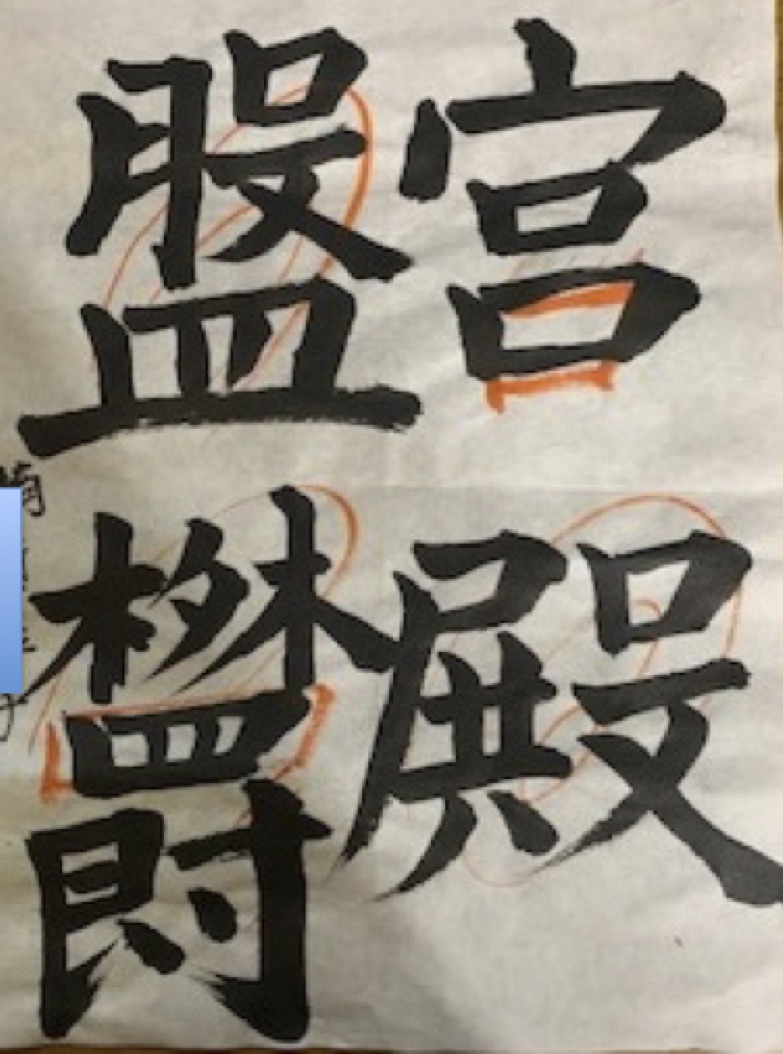 宮殿
盤鬱